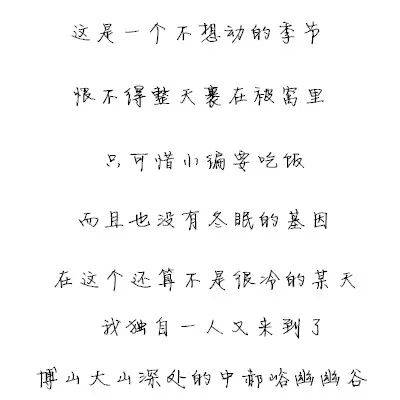 这是一个不想动的季节
恨不得整天裹在被窝里
只可惜小编要吃饭
而且也没有冬眠的基因
在这个还算不是很冷的某天
我独自一人又来到了
博山大山深处的中郝峪幽幽谷